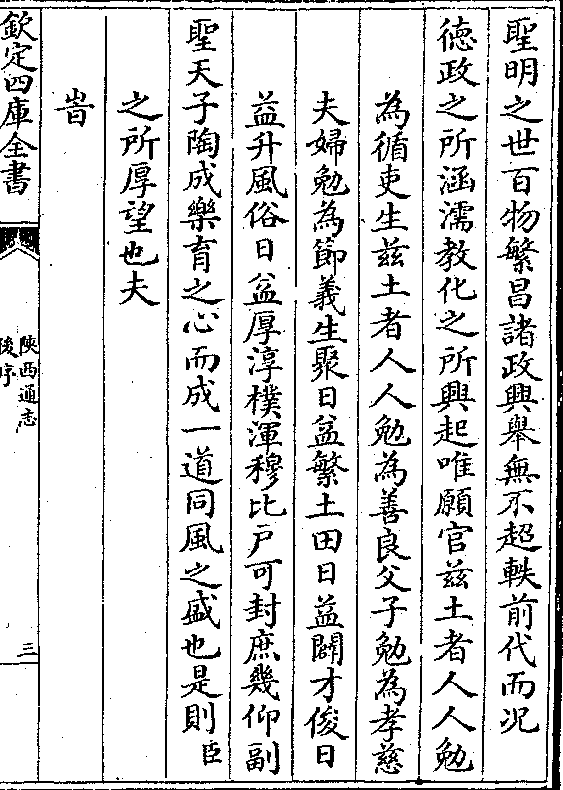 聖明之世百物繁昌諸政興舉無不超軼前代而况
德政之所涵濡教化之所興起唯願官兹土者人人勉
為循吏生兹土者人人勉為善良父子勉為孝慈
夫婦勉為節義生聚日益繁土田日益闢才俊日
益升風俗日益厚淳樸渾穆比户可封庶幾仰副
聖天子陶成樂育之心而成一道同風之盛也是則臣
之所厚望也夫
旹
欽定四庫全書
陜西通志
後序
三